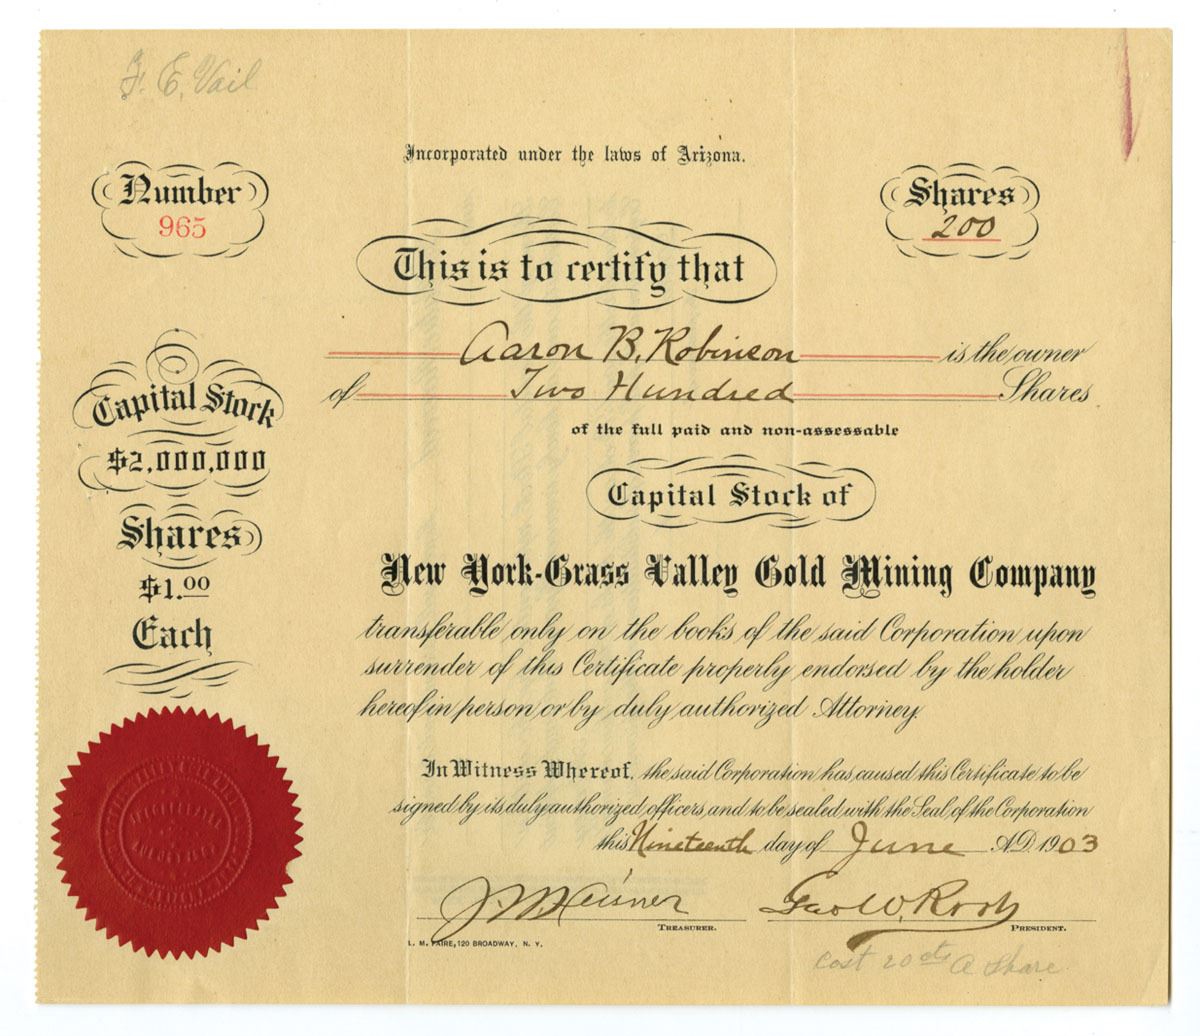 F. E. Vail
Incorporated under the laws of Arizona.
Number
965
Shares
200
This is to certify that
Aaron B. Robinson is the owner
of Two Hundred Shares
of the full paid and non-assessable
Capital Stock of
New York-Grass Valley Gold Mining Company
transferable only on the books of the said Corporation upon
surrender of this Certificate properly endorsed by the holder
hereof in person or by duly authorized Attorney.
Capital Stock
$2,000,000
Shares
$1.00
Each
In Witness Whereof, the said Corporation has caused this Certificate to be
signed by its duly authorized officers, and to be sealed with the Seal of the Corporation
this Nineteenth day of June A.D. 1903
Geo W.
TREASURER.
PRESIDENT.
L. M. FAIRE, 120 BROADWAY, N. Y.
Cost 20 cts a Share